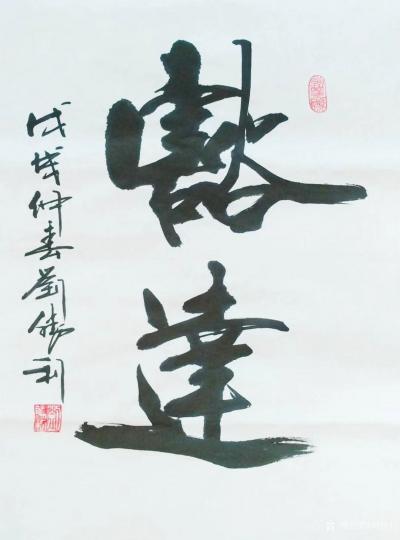 豁達
戊戌仲春劉勝利